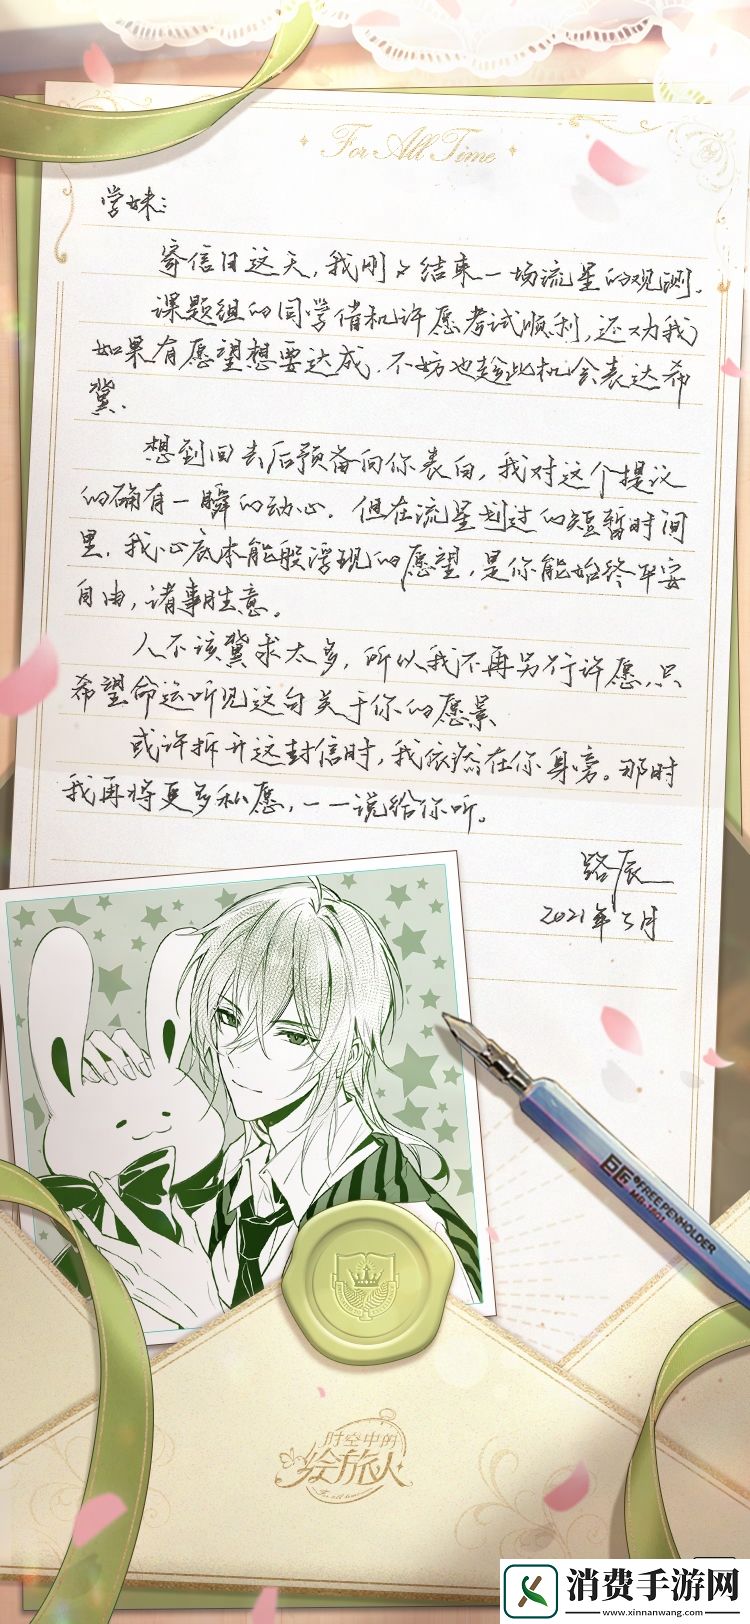 For All Time
学妹:
寄信日这天,我刚刚结束一场流星的观测。
课题组的同学借机许愿考试顺利,还劝我
如果有愿望想要达成,不妨也趁此机会表达希
冀.
想到回去后预备向你表白,我对这个提议
的确有一瞬的动心.但在流星划过的短暂时间
里,我心底本能般浮现的愿望,是你能始终平安
自由,诸事胜意。
人不该冀求太多,所以我不再另行许愿,只
希望命运听见这句关于你的愿景
或许拆开这封信时,我依旧在你身旁。那时
我再将更多私愿,一一说给你听。
路辰
2021年5月
巨匠 FREE PENHOLDER
MB-1601
时空中的
绘旅人
For all time
消费手游网
www.xinnanwang.com